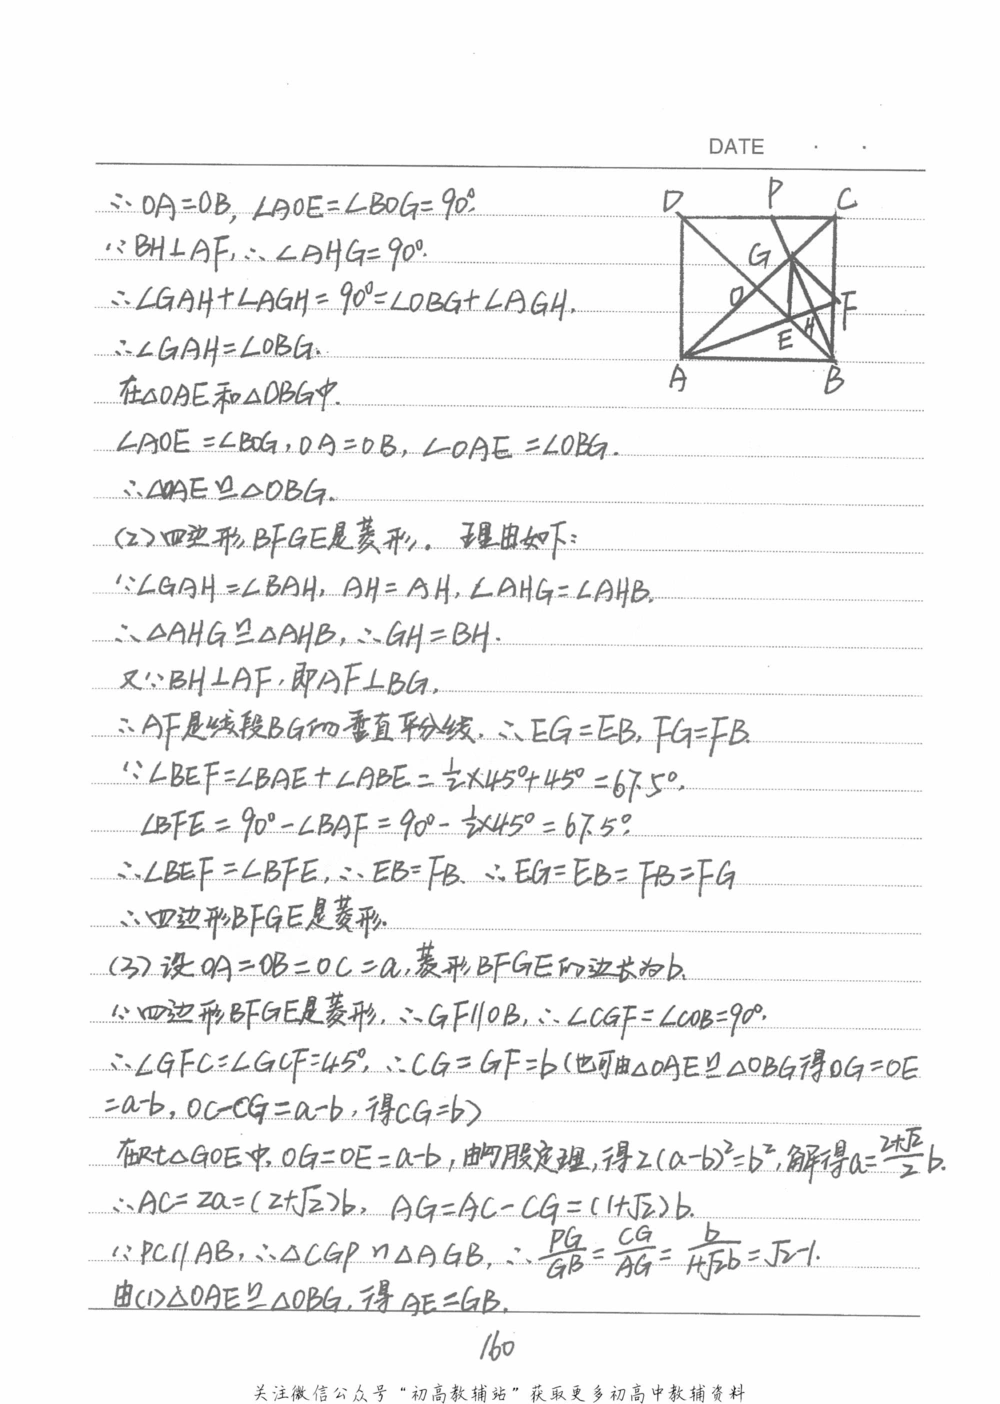 DATE · ·
∴OA=OB, ∠AOE=∠BOG=90°.
∵BH⊥AF,∴∠AHG=90°.
∴∠GAH+∠AGH=90°=∠OBG+∠AGH.
∴∠GAH=∠OBG.
在△OAE和△OBG中.
∠AOE=∠BOG,OA=OB,∠OAE=∠OBG.
∴△OAE≌△OBG.
(2)四边形BFGE是菱形. 理由如下:
∵∠GAH=∠BAH, AH=AH,∠AHG=∠AHB.
∴△AHG≌△AHB,∴GH=BH.
又∵BH⊥AF,即AF⊥BG.
∴AF是线段BG的垂直平分线.∴EG=EB,FG=FB.
∵∠BEF=∠BAE+∠ABE=½×45°+45°=67.5°.
∠BFE=90°-∠BAF=90°-½×45°=67.5°.
∴∠BEF=∠BFE,∴EB=FB.∴EG=EB=FB=FG
∴四边形BFGE是菱形.
(3)设OA=OB=OC=a,菱形BFGE的边长为b.
∵四边形BFGE是菱形,∴GF∥OB,∴∠CGF=∠COB=90°.
∴∠GFC=∠GCF=45°,∴CG=GF=b(也可由△OAE≌△OBG得OG=OE
=a-b,OC-CG=a-b,得CG=b)
在Rt△GOE中,OG=OE=a-b,由勾股定理,得2(a-b)²=b²,解得a=(2+√2)/2 b.
∴AC=2a=(2+√2)b, AG=AC-CG=(1+√2)b.
∵PC∥AB,∴△CGP∽△AGB,∴PG/GB=CG/AG=b/(1+√2b)=√2-1.
由(1)△OAE≌△OBG,得AE=GB.
D P C
G
O F
E H
A B
160
关注微信公众号“初高教辅站”获取更多初高中教辅资料